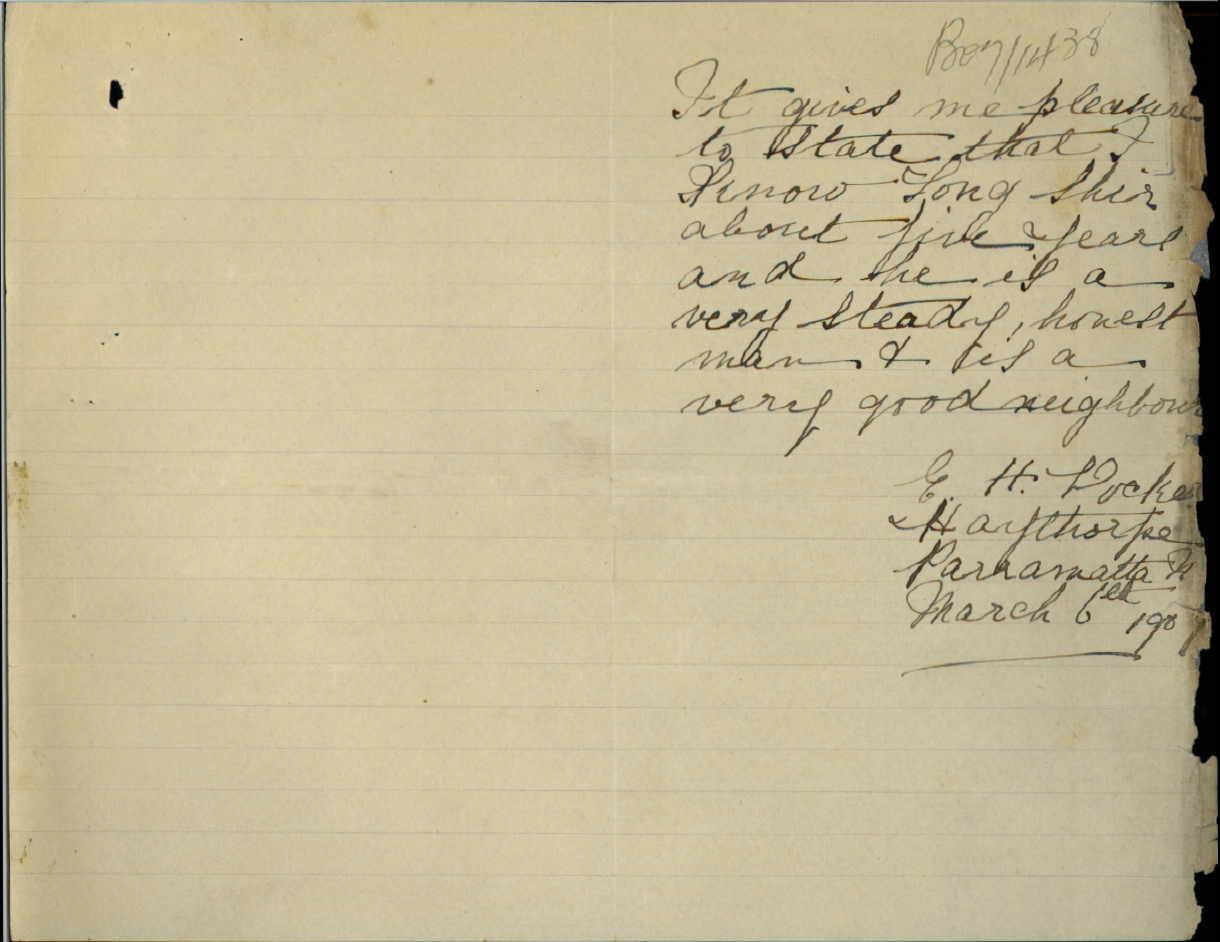 B07/1438
It gives me pleasure
to state that I
Know Hong Shin
about five years
and he is a
very steady, honest
man & is a
very good neighbour
E. H.
Haythorpe
Parramatta N
March 6th 1907